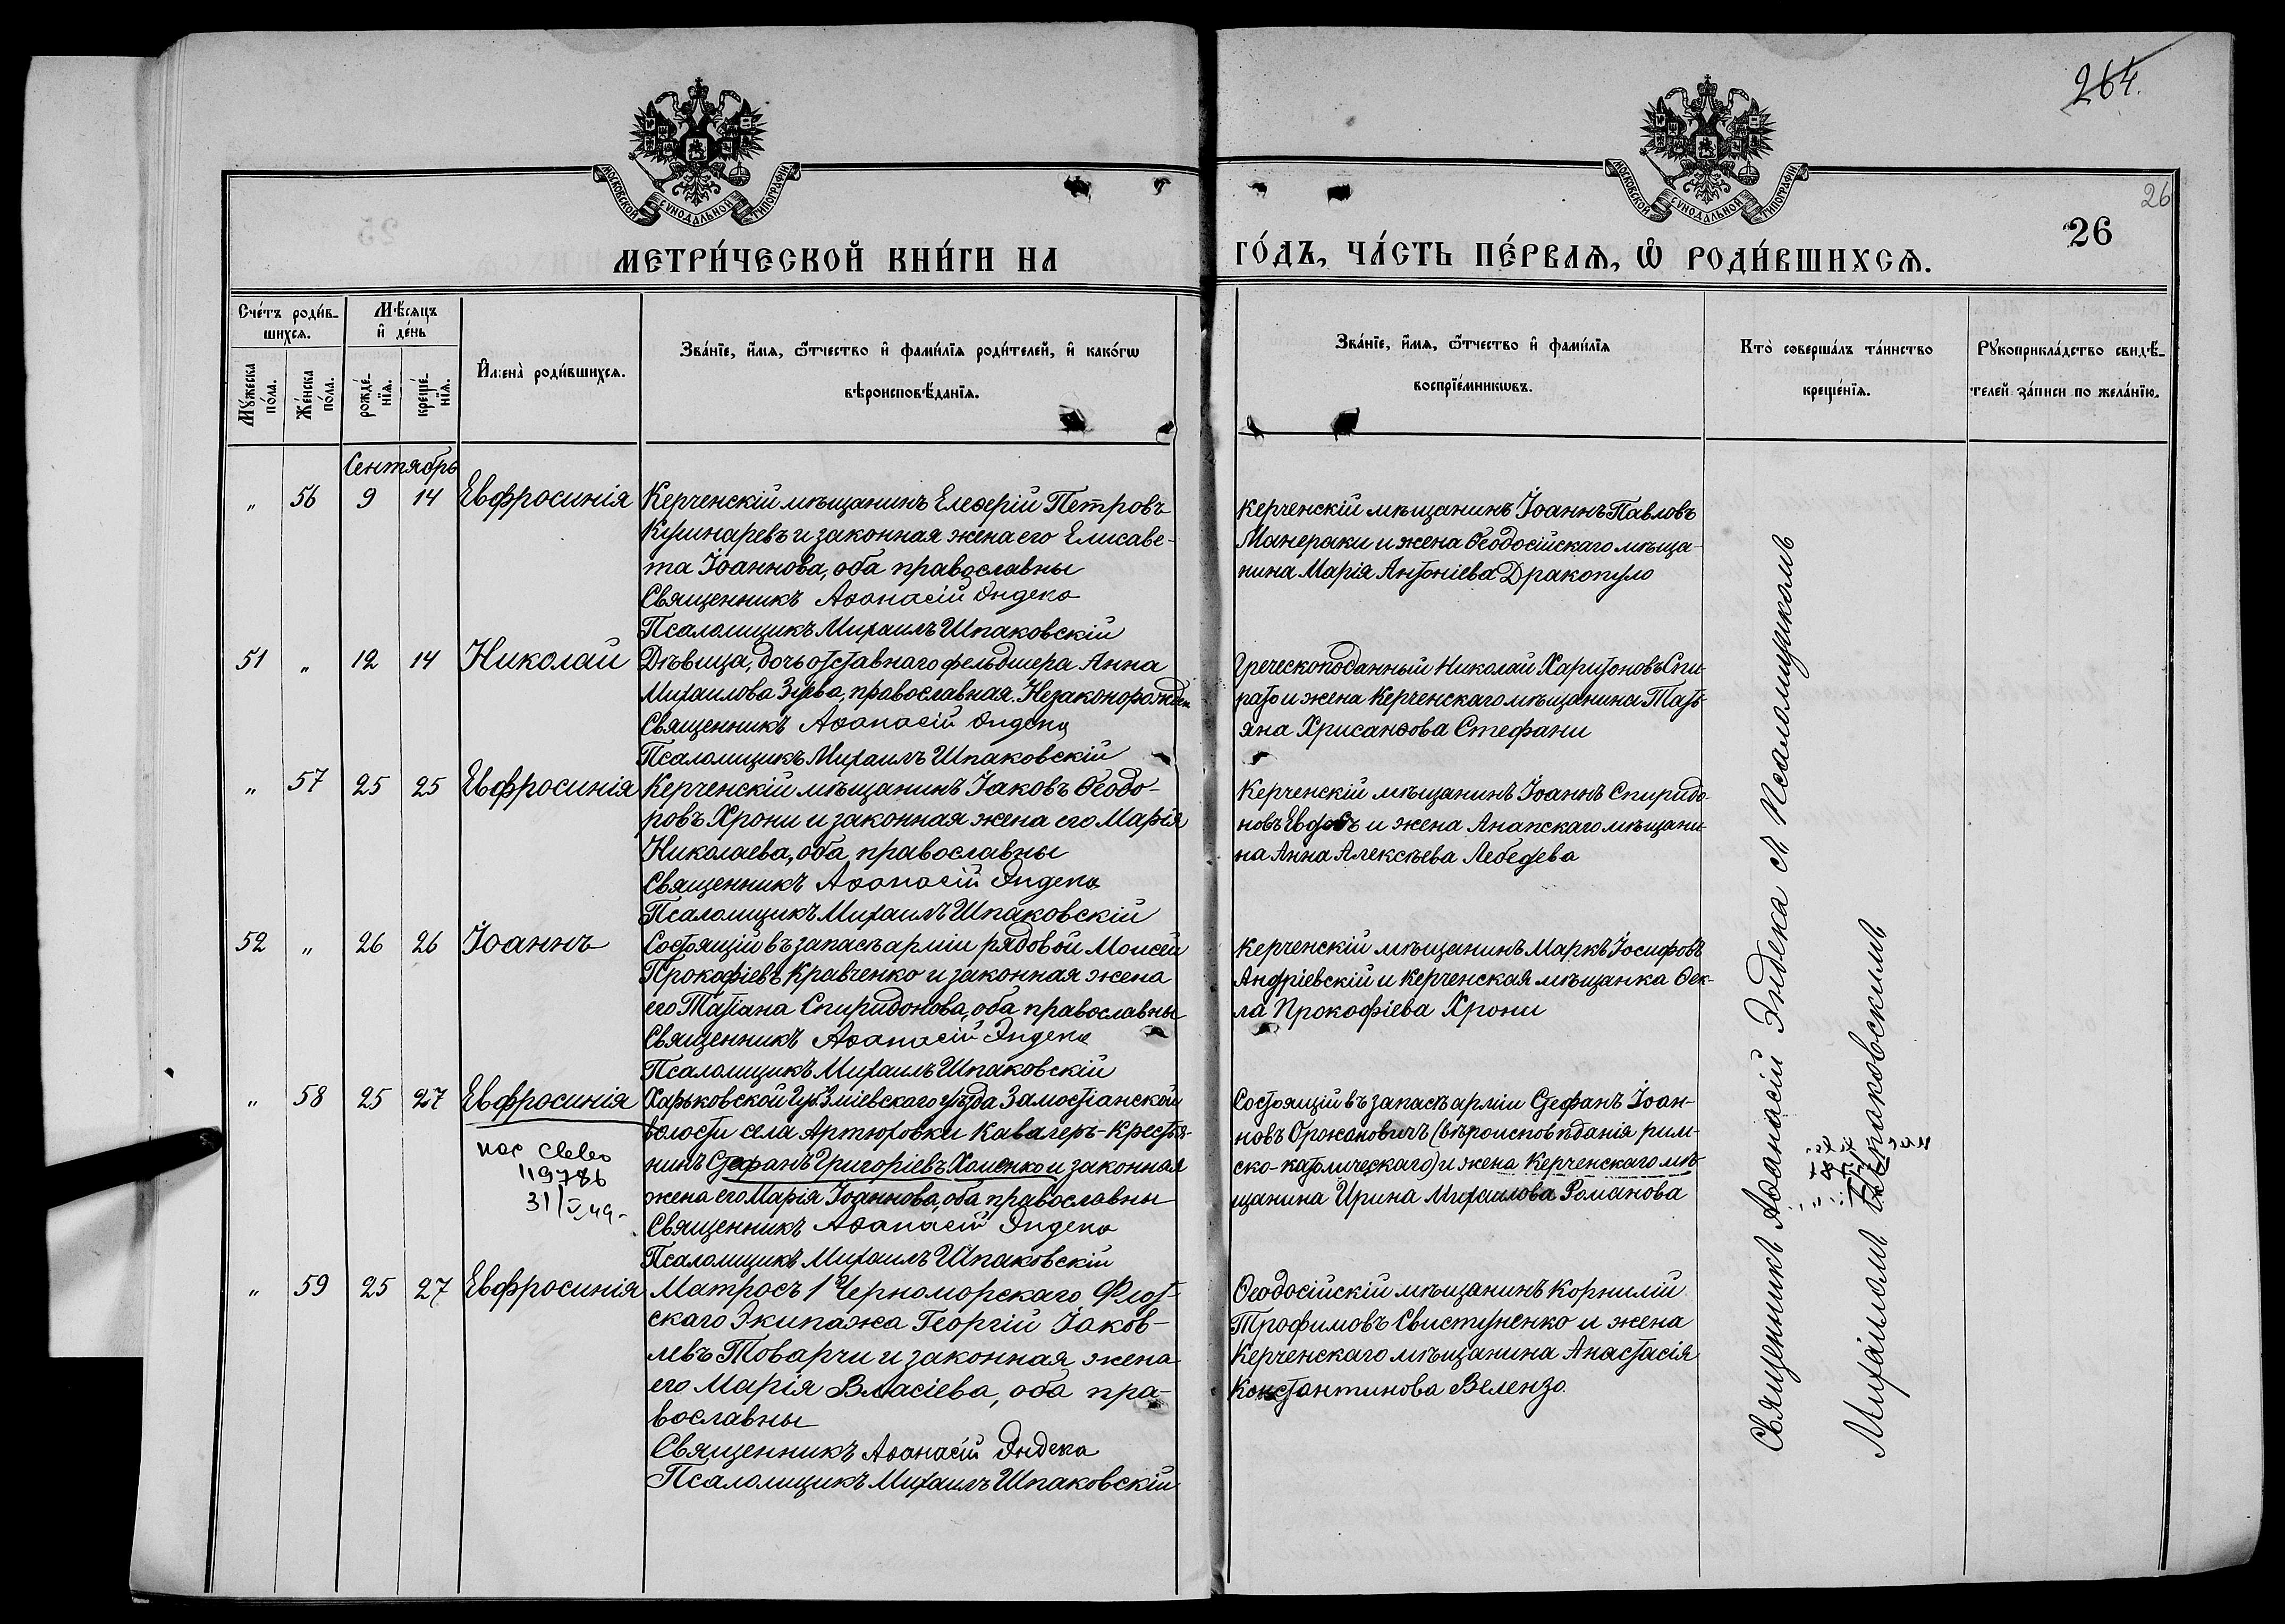 264.
26
26
МОСКОВСКОЙ СУНОДАЛЬНОЙ ТИПОГРАФІИ
МОСКОВСКОЙ СУНОДАЛЬНОЙ ТИПОГРАФІИ
МЕТРИ́ЧЕСКОЙ КНИ́ГИ НА
ГО́ДЪ, ЧА́СТЬ ПЕ́РВАѦ, Ѡ҆ РОДИ́ВШИХСѦ.
Сче́тъ роди́в-
шихсѧ.
Мѣ́сѧцъ
и҆ де́нь
Мꙋ́жеска
по́ла.
Же́нска
по́ла.
рожде́-
нїѧ.
креще́-
нїѧ.
И҆мена̀ роди́вшихсѧ.
Зва́нїе, и҆́мѧ, ѻ҆́тчество и҆ фами́лїѧ роди́телей, и҆ како́гѡ
вѣроисповѣ́данїѧ.
Зва́нїе, и҆́мѧ, ѻ҆́тчество и҆ фами́лїѧ
воспрїе́мникѡвъ.
Кто̀ соверша́лъ та́инство
креще́нїѧ.
Рꙋкоприкла́дство свидѣ́-
телей за́писи по жела́нїю.
Сентябрь
" 56 9 14 Евфросинія
Керченскій мѣщанинъ Елеѳерій Петровъ
Кушнаревъ и законная жена его Елисаве-
та Іоаннова, оба православны
Священникъ Аѳанасій Эндека
Псаломщикъ Михаилъ Шпаковскій
Керченскій мѣщанинъ Іоаннъ Павловъ
Манераки и жена Ѳеодосійскаго мѣща-
нина Марія Антоніева Дракопуло
51 " 12 14 Николай
Дѣвица, дочь отставнаго фельдшера Анна
Михаилова Зуева, православная. Незаконорожден
Священникъ Аѳанасій Эндека
Псаломщикъ Михаилъ Шпаковскій
Греческоподанный Николай Харитоновъ Спи-
рато и жена Керченскаго мѣщанина Тать-
яна Хрисанѳова Стефани
" 57 25 25 Евфросинія
Керченскій мѣщанинъ Іаковъ Ѳеодо-
ровъ Хрони и законная жена его Марія
Николаева, оба православны
Священникъ Аѳанасій Эндека
Псаломщикъ Михаилъ Шпаковскій
Керченскій мѣщанинъ Іоаннъ Спиридо-
новъ и жена Анапскаго мѣщани-
на Анна Алексѣева Лебедева
52 " 26 26 Іоаннъ
Состоящій въ запасѣ арміи рядовой Моисей
Прокофіевъ Кравченко и законная жена
его Татіана Спиридонова, оба православны
Священникъ Аѳанасій Эндека
Псаломщикъ Михаилъ Шпаковскій
Керченскій мѣщанинъ Маркъ Іосифовъ
Андріевскій и Керченская мѣщанка Ѳек-
ла Прокофіева Хрони
" 58 25 27 Евфросинія
119786
31/V 49
Харьковской губ. Зміевскаго уѣзда Замостіанской
волости села Артюховки Кавалеръ-Крестья-
нинъ Стефанъ Григоріевъ Хоменко и законная
жена его Марія Іоаннова, оба православны
Священникъ Аѳанасій Эндека
Псаломщикъ Михаилъ Шпаковскій
Состоящій въ запасѣ арміи Стефанъ Іоан-
новъ Оржановичъ (вѣроисповѣданія рим-
ско-католическаго) и жена Керченскаго мѣ-
щанина Ирина Михаилова Романова
" 59 25 27 Евфросинія
Матросъ 1го Черноморскаго Флот-
скаго Экипажа Георгій Іаков-
левъ Товарчи и законная жена
его Марія Власіева, оба пра-
вославны
Священникъ Аѳанасій Эндека
Псаломщикъ Михаилъ Шпаковскій
Ѳеодосійскій мѣщанинъ Корнилій
Трофимовъ Свистуненко и жена
Керченскаго мѣщанина Анастасія
Константинова Велензо
Священникъ Аѳанасій Эндека съ Псаломщикомъ
Михаиломъ Шпаковскимъ